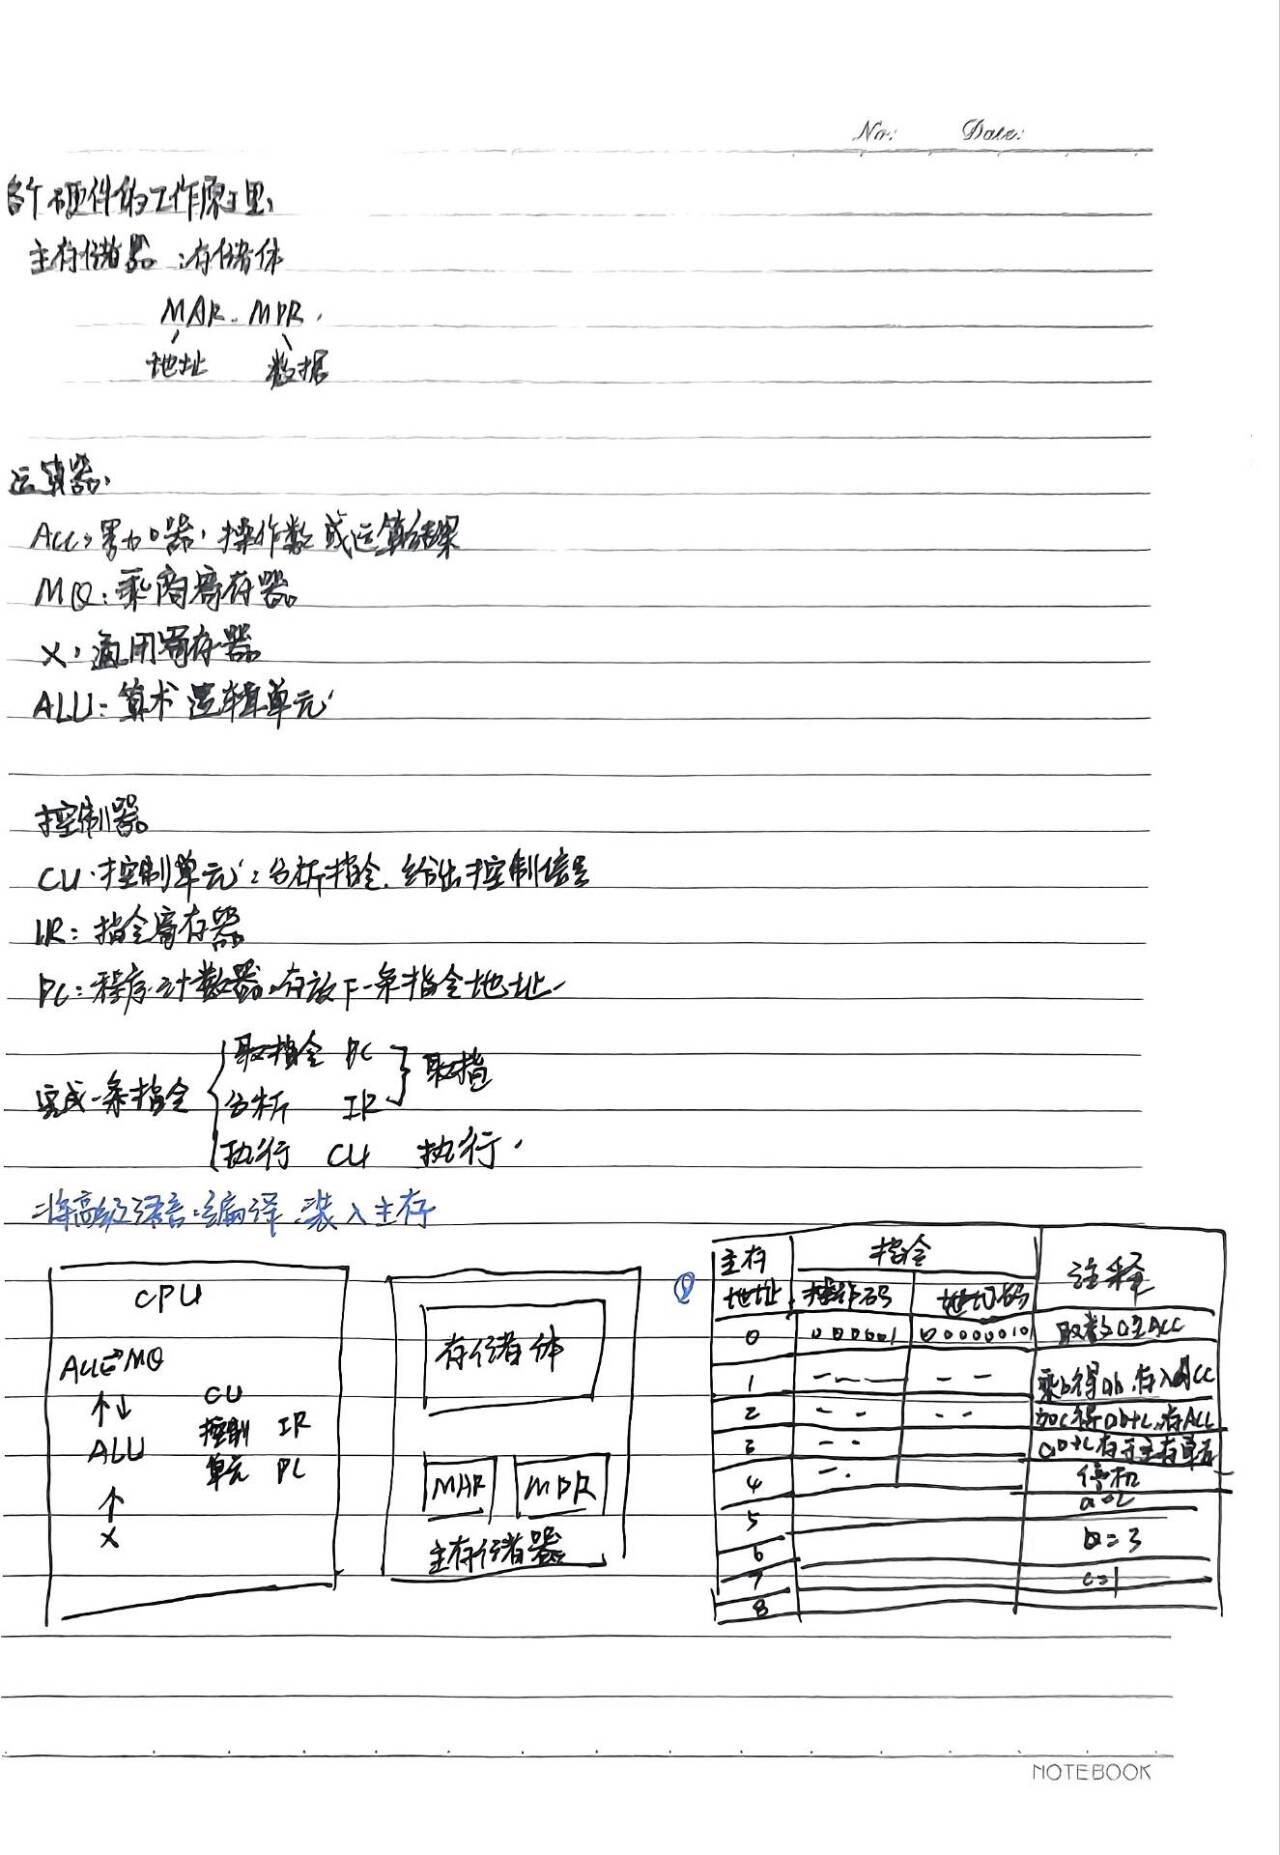 No: Date:
各个硬件的工作原理,
主存储器:存储体
MAR. MDR,
地址 数据
运算器,
ACC:累加器,操作数或运算结果
MQ:乘商寄存器
X,通用寄存器
ALU:算术逻辑单元
控制器
CU.控制单元:分析指令.给出控制信号
IR:指令寄存器
PC:程序计数器,存放下一条指令地址
完成一条指令
取指令 PC
分析 IR
取指
执行 CU 执行.
将高级语言.编译.装入主存
CPU
ACC MQ
ALU
X
CU
控制 IR
单元 PC
存储体
MAR MDR
主存储器
主存 指令 注释
地址 操作码 地址码
0 000001 0000000101 取数a至ACC
1 乘b得ab,存入ACC
2 加c得ab+c,存ACC
3 ab+c存于主存单元
4 停机
5 a=2
6 b=3
7 c=1
8
NOTEBOOK